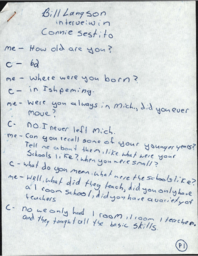 Bill Langson
interveiwin
Connie sestito
me - How old are you?
c - 62
me - Where were you born?
c - in Ishpeming.
me - were you always in Mich, did you ever
move?
c - No I never left Mich.
me - Can you recall some of your younger years?
Tell me about them, like what were your
schools like? when you were small?
c - what do you mean what were the schools like?
me - Well, what did they teach, did you only have
a 1 room school, did you have a variety of
teachers
c - no we only had 1 room 1 teacher
and they taught all the basic skills